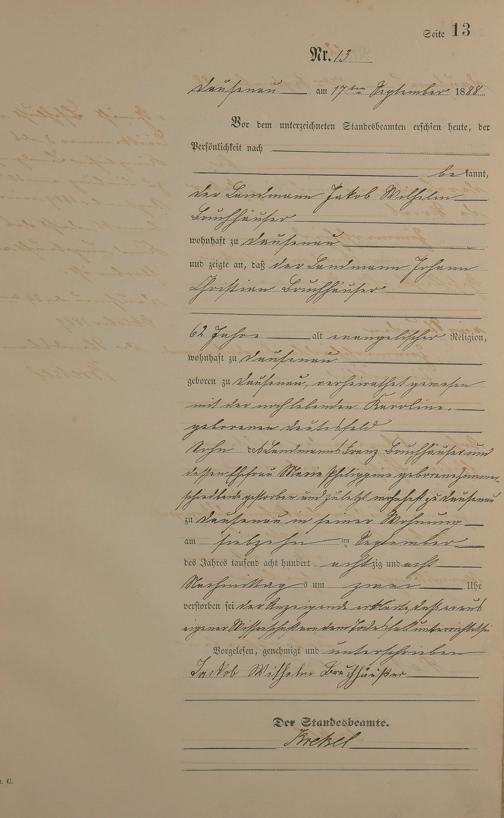 Seite 13
Nr. 13
Dausenau am 17ten September 1888
Vor dem unterzeichneten Standesbeamten erschien heute, der
Persönlichkeit nach
bekannt,
der Landmann Jakob Wilhelm
Bruchhäuser
wohnhaft zu Dausenau
und zeigte an, daß der Landmann Johann
Christian Bruchhäuser
62 Jahre alt evangelischer Religion,
wohnhaft zu Dausenau
geboren zu Dausenau, verheirathet gewesen
mit der noch lebenden Karoline
geborenen
Sohn des Landmanns Franz Bruchhäuser und
dessen Ehefrau Maria Philippine geborene
beide gestorben und zuletzt wohnhaft zu Dausenau
zu Dausenau in seiner Wohnung
am siebzehn ten September
des Jahres tausend acht hundert achtzig und acht
Nachmittags um zwei Uhr
verstorben sei der Anzeigende erklärte, daß er aus
eigener Wissenschaft von dem Todesfall unterrichtet sei
Vorgelesen, genehmigt und unterschrieben
Jackob Wilhelm Bruchhäußer
Der Standesbeamte.